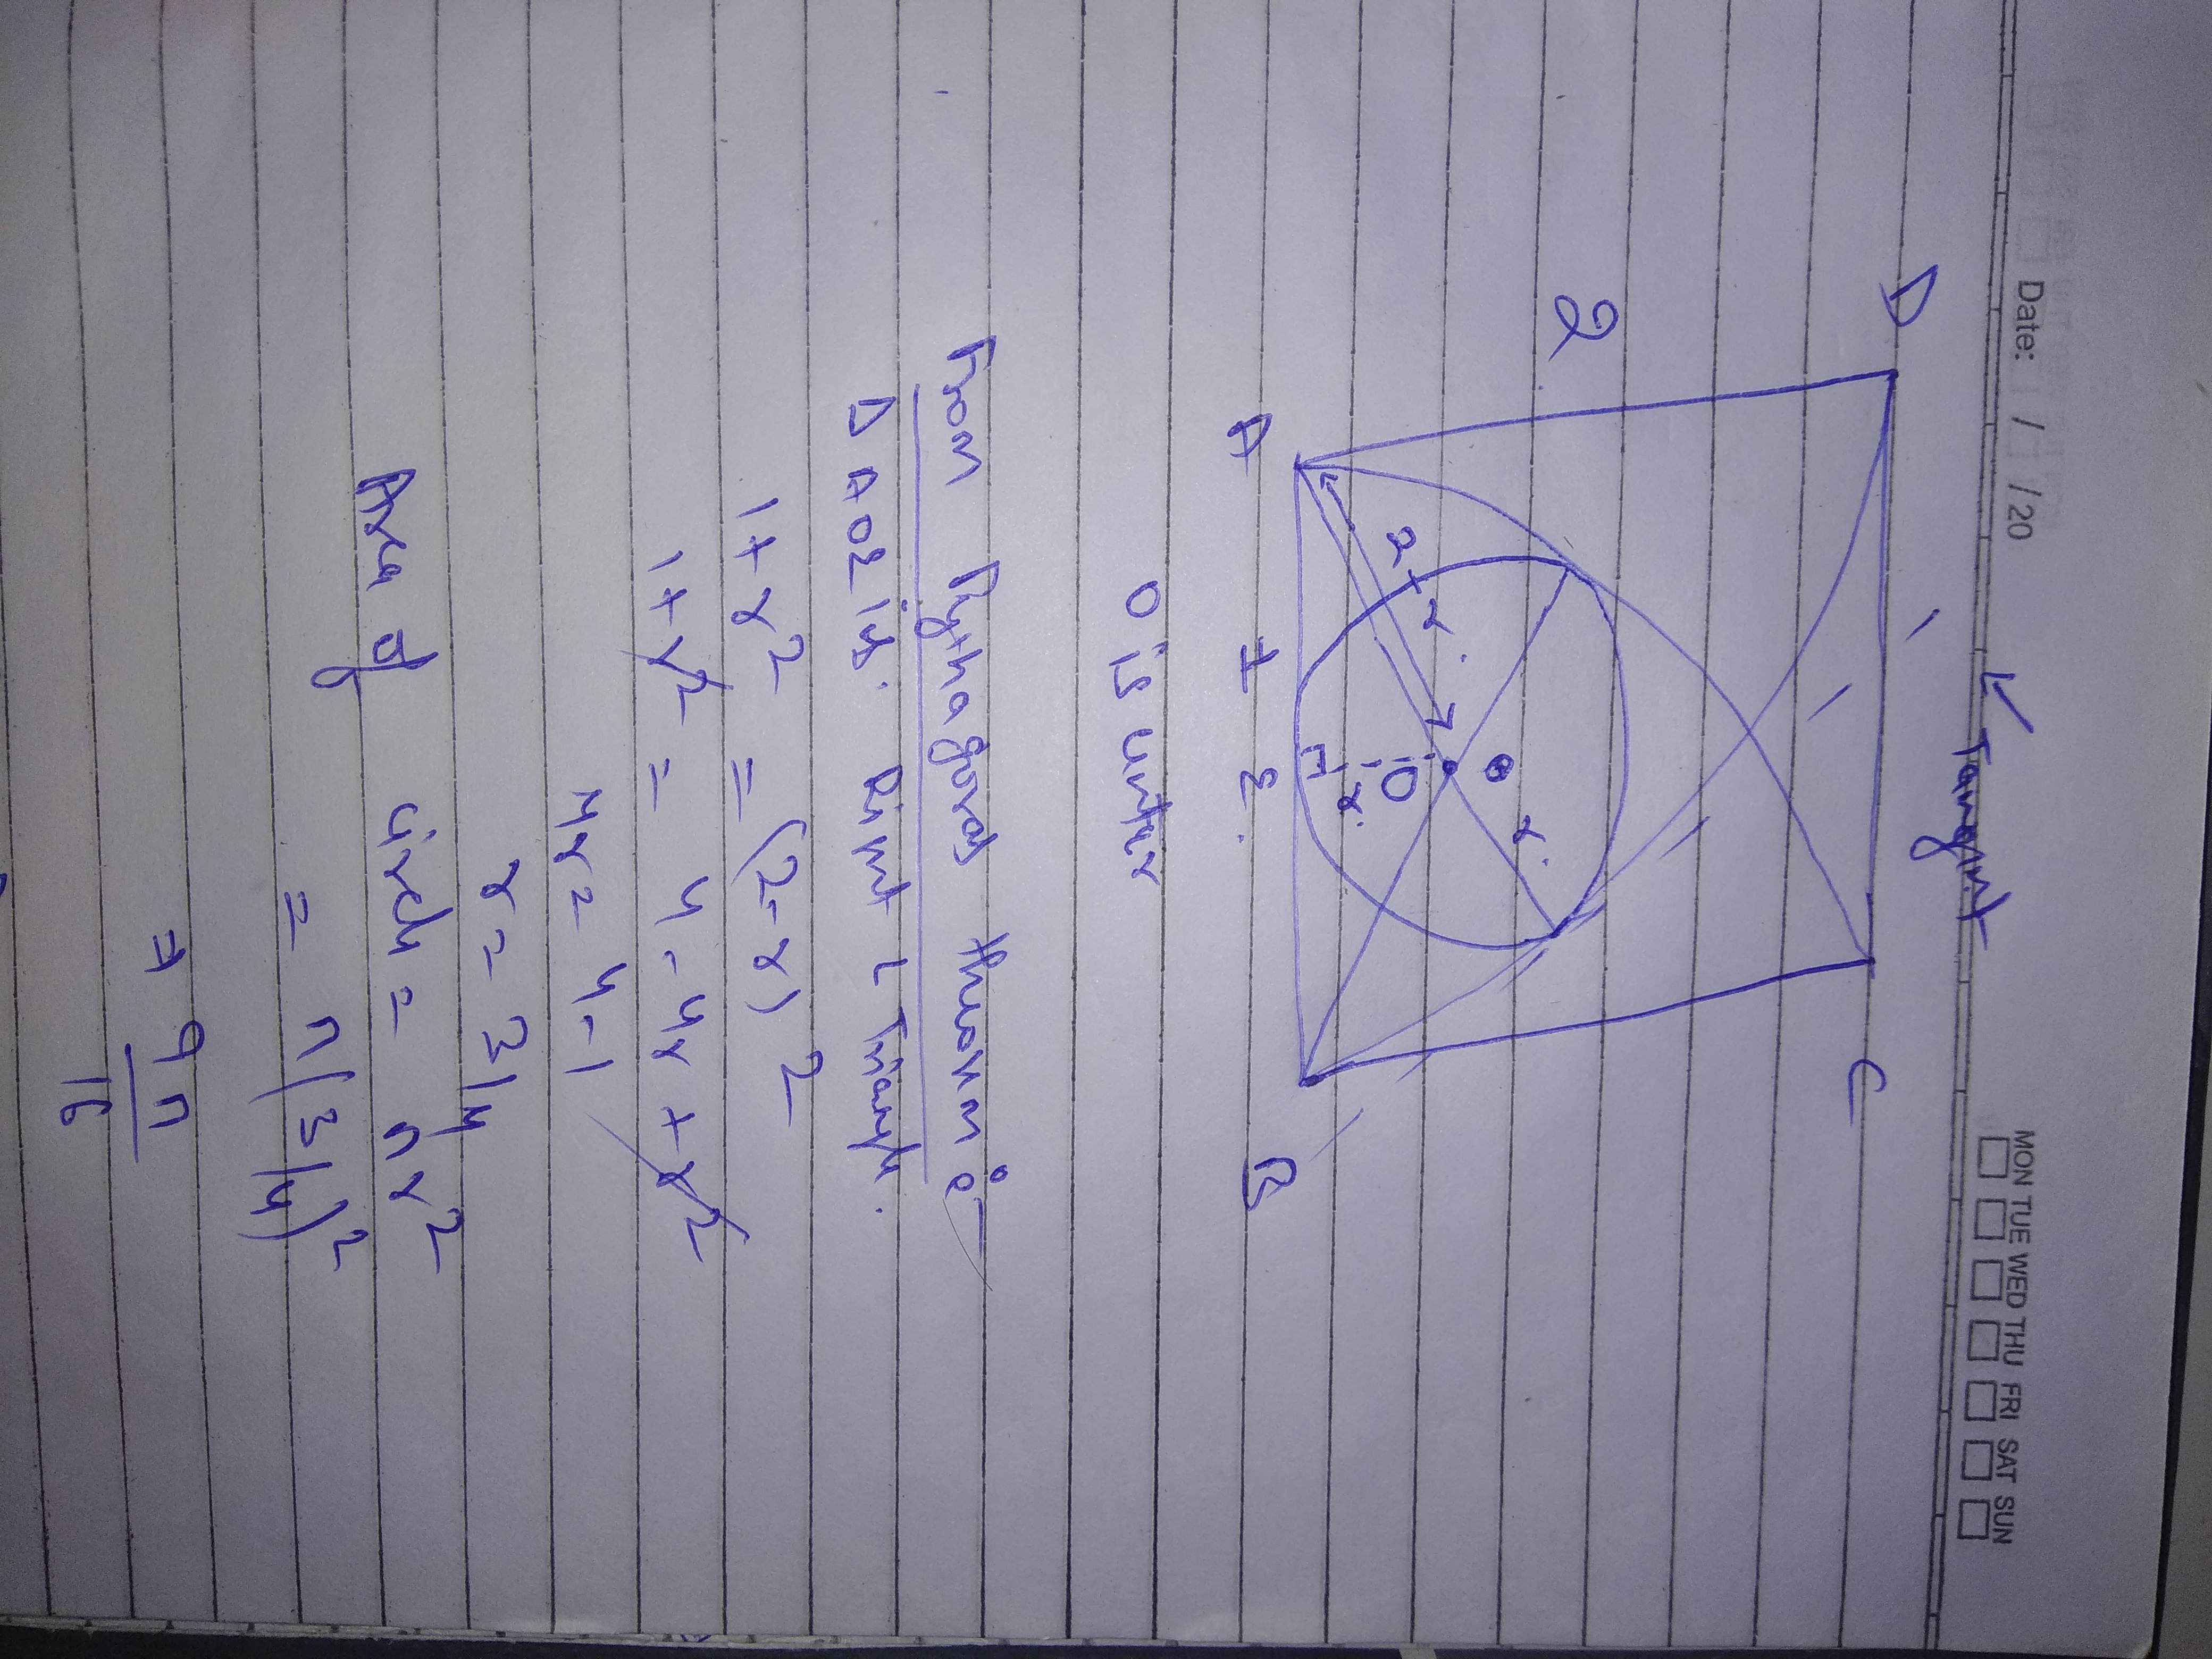 Date: / /20
MON TUE WED THU FRI SAT SUN
Tangint
D
C
2
2-r
r.
O
r.
A
1
ε.
B
O is
From Pythagoras
Δ AOE is. Right L Triangle.
1+r² = (2-r)²
1+r² = 4-4r+r²
4r = 4-1
r = 3/4
Area of circle = πr²
= π(3/4)²
= 9π
16